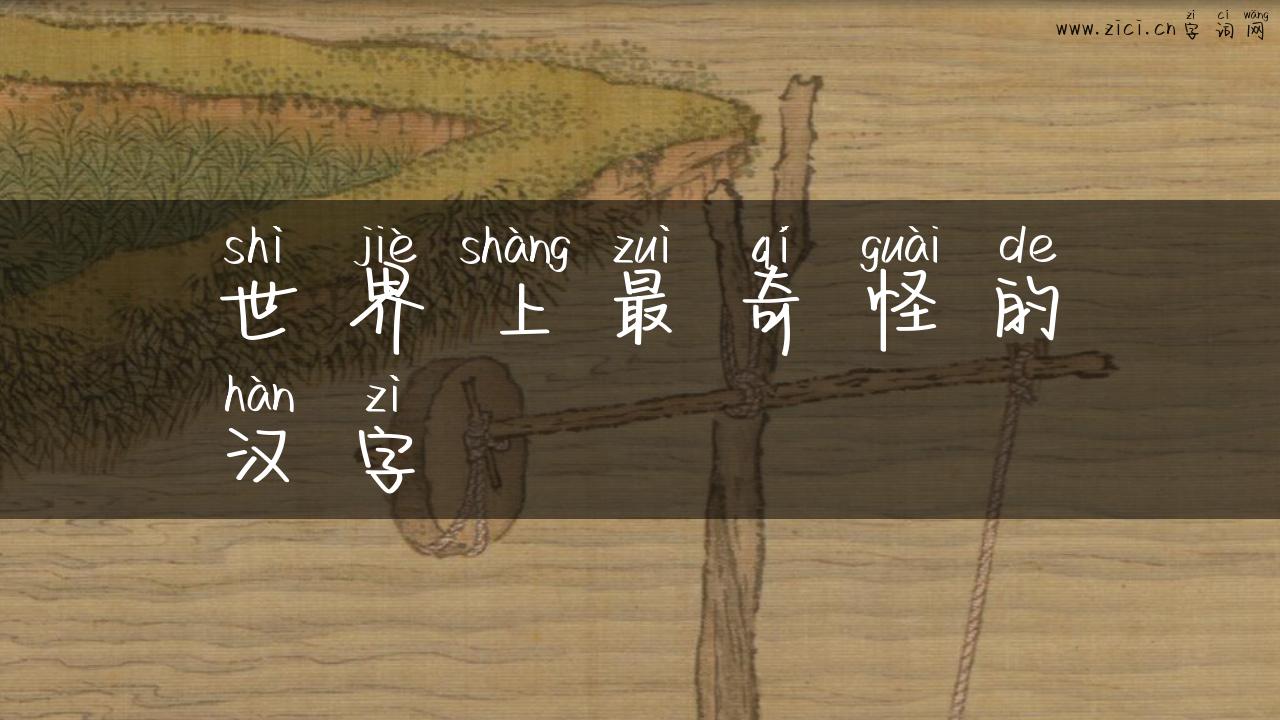 zì cí wǎng
www.zici.cn 字词网
shì jiè shàng zuì qí guài de
世界上最奇怪的
hàn zì
汉字